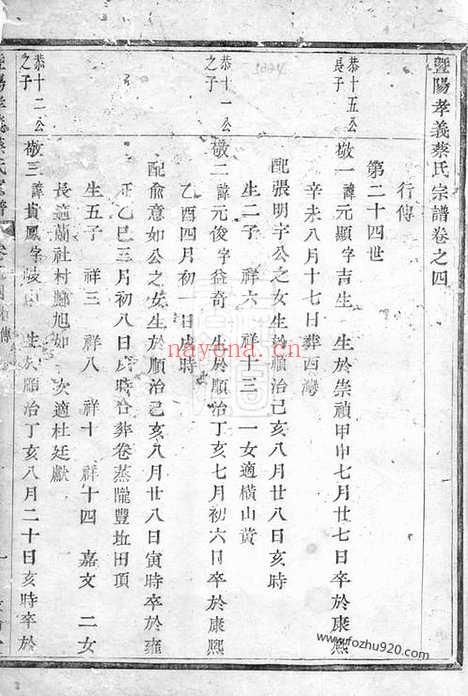 暨陽孝義蔡氏宗譜卷之四
行傳
第二十四世
恭十五公長子
敬一諱元顯字吉生 生於崇禎甲申七月廿七日卒於康熙
辛未八月十七日葬西灣
配張明字公之女生於順治己亥八月廿八日亥時
生二子 祥六 祥十三 一女適橫山黃
恭十一公之子
敬二諱元俊字益奇 生於順治丁亥七月初六日卒於康熙
乙酉四月初一日戌時
配俞意如公之女生於順治己亥八月廿八日寅時卒於雍
正乙巳三月初八日時合葬卷蒸隴豐坵田項
生五子 祥三 祥八 祥十 祥十四 嘉文 二女
長適蘭社村縣旭如 次適杜廷獻
恭十二公之子
敬三諱貴鳳字岐 生於順治丁亥八月二十日亥時卒於
nayona.cn
www.fozhu920.com